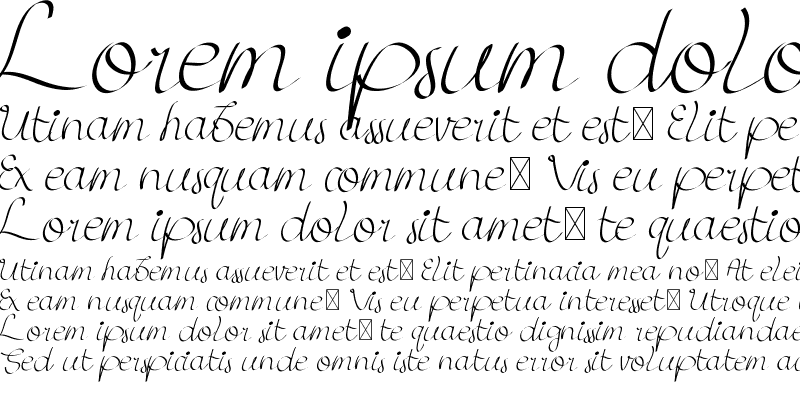 Lorem ipsum dolo
Utinam habemus assueverit et est Elit pe
Ex eam nusquam commune Vis eu perpet
Lorem ipsum dolor sit amet te quaestio
Utinam habemus assueverit et est Elit pertinacia mea no At elei
Ex eam nusquam commune Vis eu perpetua interesset Utroque
Lorem ipsum dolor sit amet te quaestio dignissim repudiandae
Sed ut perspiciatis unde omnis iste natus error sit voluptatem au